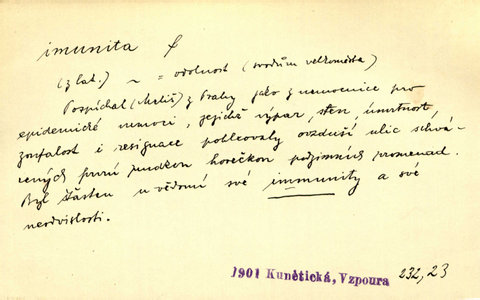 imunita f
(z lat.) ~ = odolnost (svodům velkoměsta)
Pospíchal (Matiš) z Prahy jako z nemocnice pro
epidemické nemoci, jejichž výpar, sten, úmrtnost,
zoufalost i resignace potlcovaly ovzduší ulic schvá-
cených první prudkou horečkou podzimních promenad.
Byl šťasten u vědomí své immunity a své
neodvislosti.
1901 Kunětická, Vzpoura 232, 23